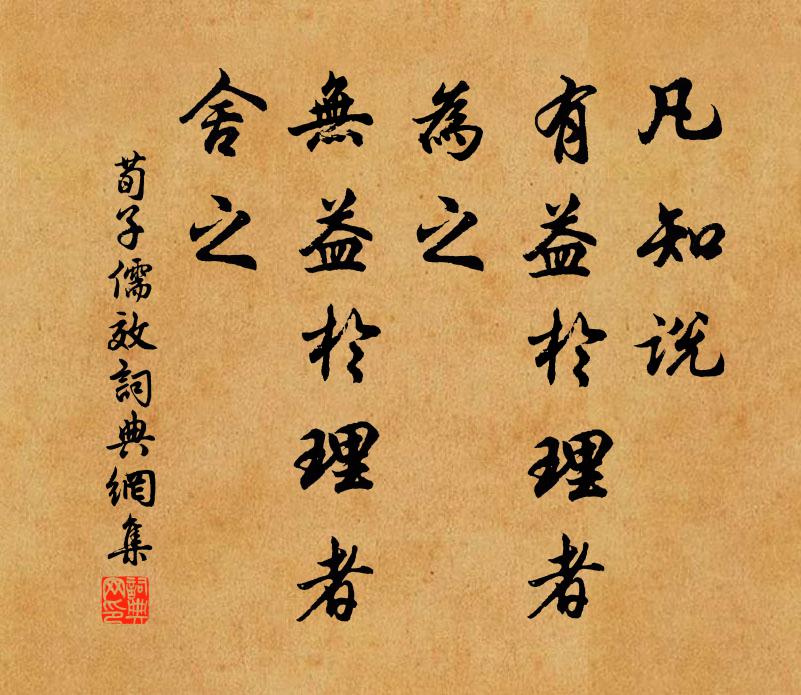 凡知說
有益於理者
為之
無益於理者
舍之
荀子儒效詞典網集
詞典网印